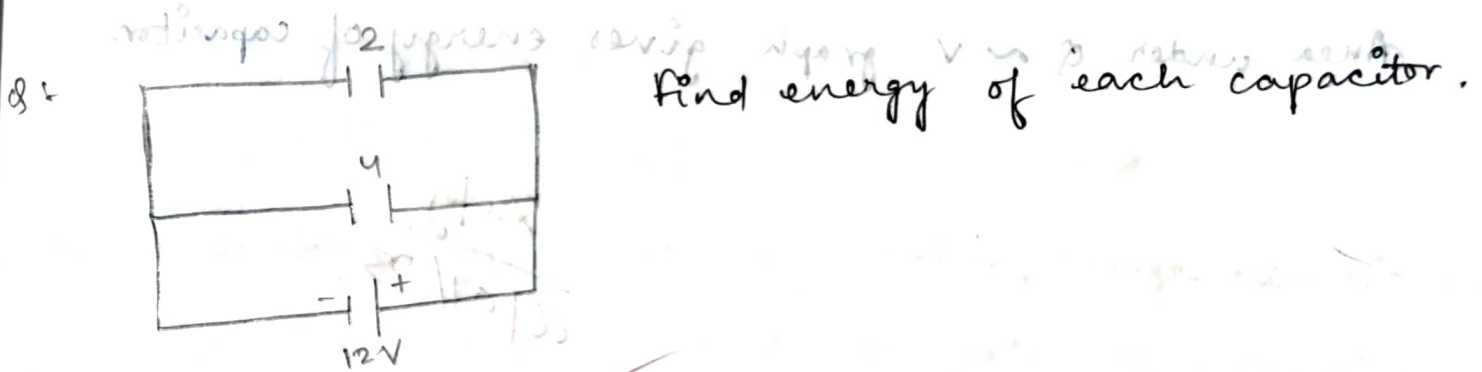 Q:
2
Find energy of each capacitor.
4
- +
12V